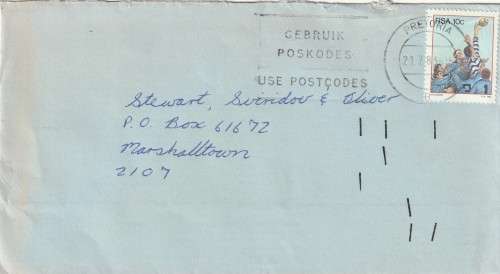 GEBRUIK
POSKODES
USE POSTCODES
PRETORIA
RSA 10c
Stewart, Sviridov & Oliver
P.O. Box 61672
Marshalltown
2107